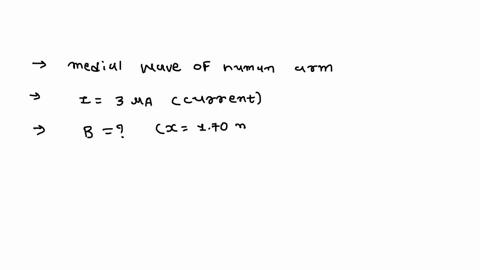 → medial wave of human arm
→ I = 3 μA (current)
→ B = ? (x = 1.70 m